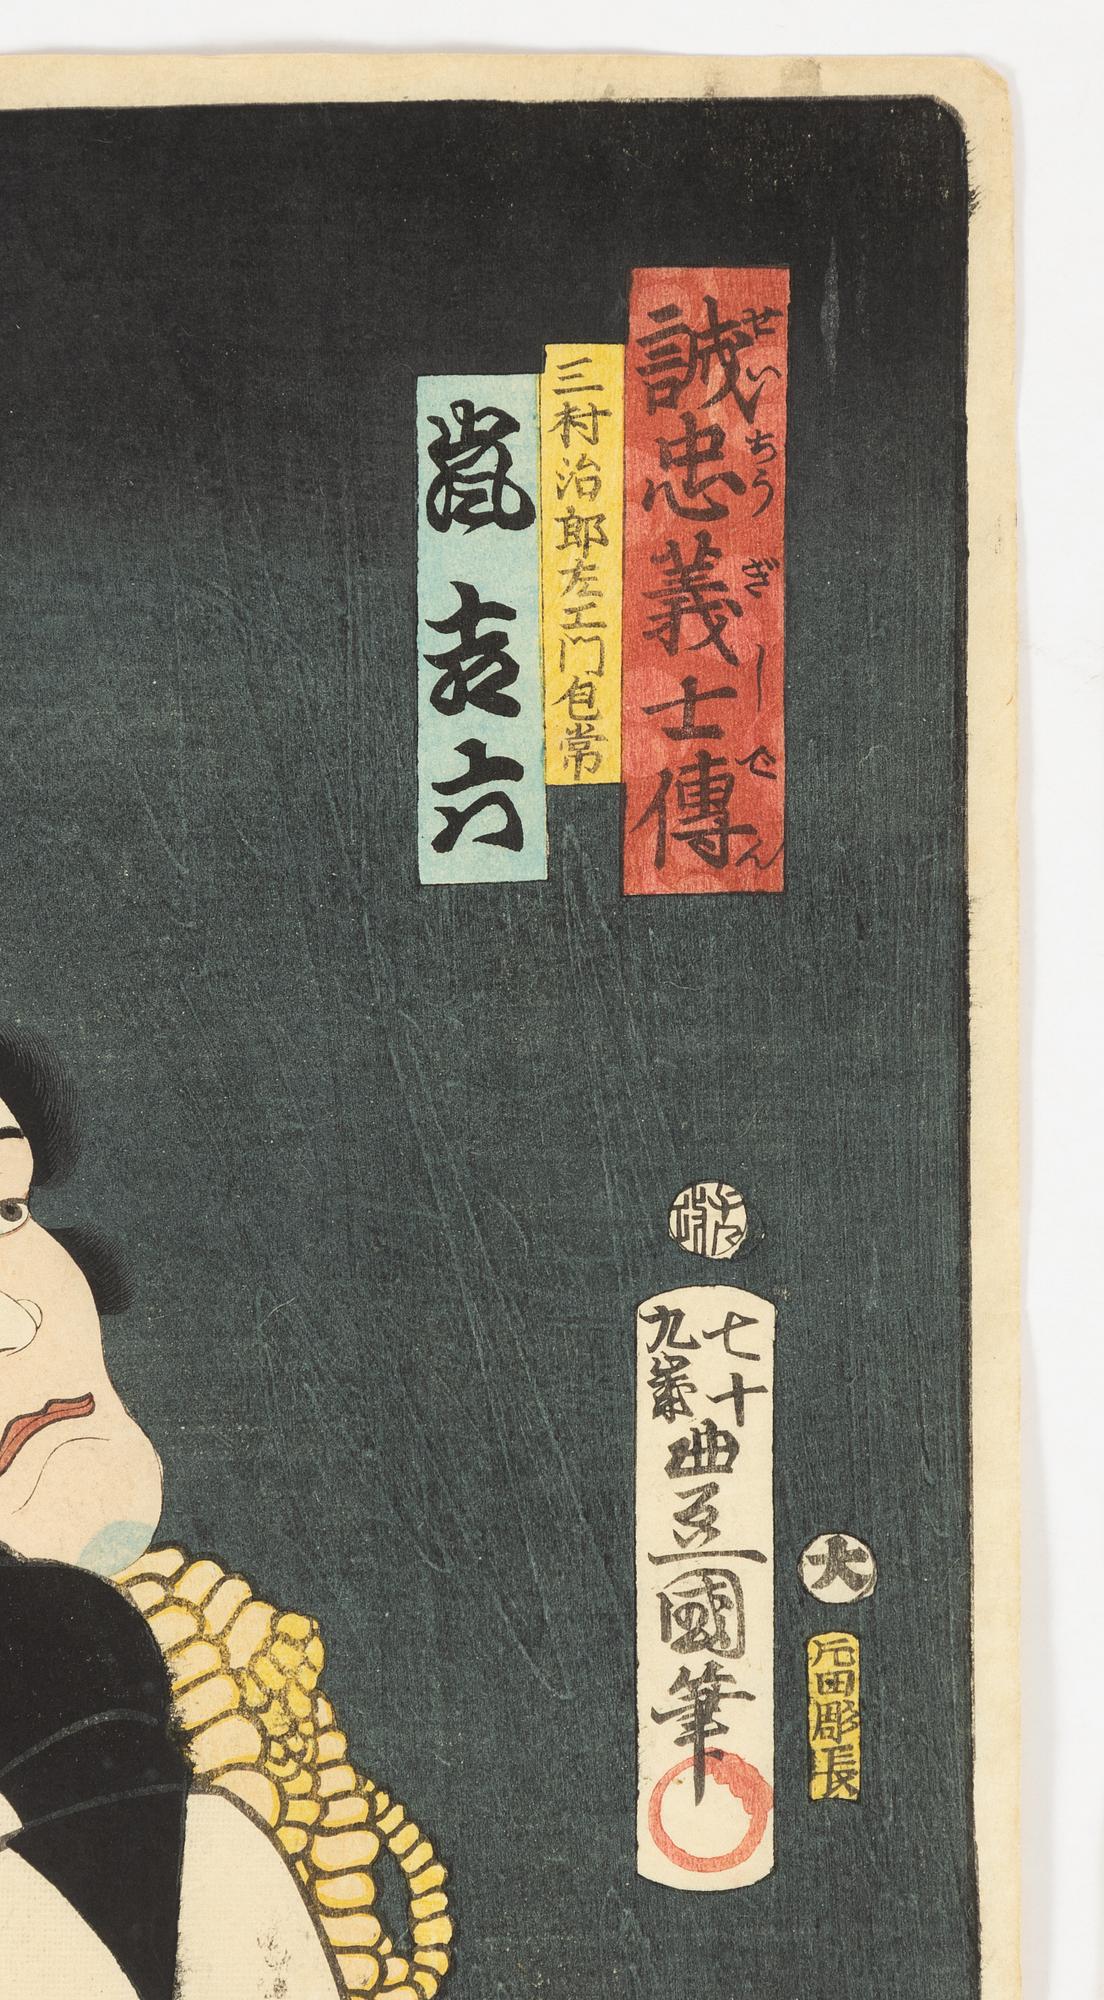 誠忠義士傳
せいちうぎしでん
三村治郎左エ門包常
嵐吉六
七十
九歳
豊國筆
大
片田彫長